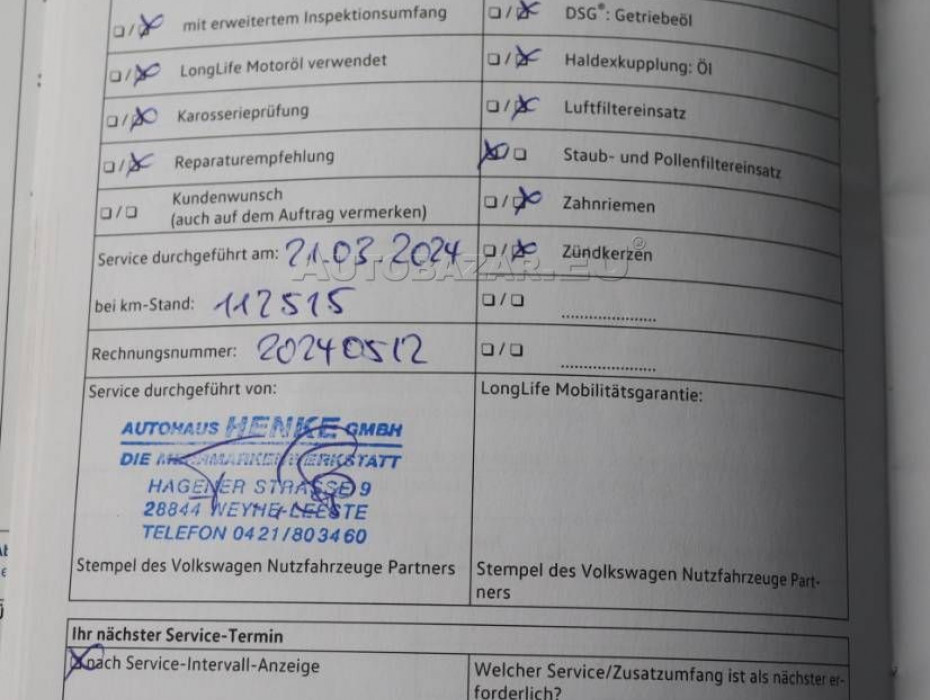 ☐/☒ mit erweitertem Inspektionsumfang
☐/☒ LongLife Motoröl verwendet
☐/☒ Karosserieprüfung
☐/☒ Reparaturempfehlung
☐/☐ Kundenwunsch
(auch auf dem Auftrag vermerken)
Service durchgeführt am: 21.03.2024
bei km-Stand: 112515
Rechnungsnummer: 20240512
☐/☒ DSG®: Getriebeöl
☐/☒ Haldexkupplung: Öl
☐/☒ Luftfiltereinsatz
☒/☐ Staub- und Pollenfiltereinsatz
☐/☒ Zahnriemen
☐/☒ Zündkerzen
☐/☐ ....................
☐/☐ ....................
AUTOBAZAR.EU®
Service durchgeführt von:
AUTOHAUS HENKE GMBH
DIE MEHRMARKENWERKSTATT
HAGENER STRASSE 9
28844 WEYHE-LEESTE
TELEFON 0421/803460
Stempel des Volkswagen Nutzfahrzeuge Partners
LongLife Mobilitätsgarantie:
Stempel des Volkswagen Nutzfahrzeuge Part-
ners
Ihr nächster Service-Termin
☒ nach Service-Intervall-Anzeige
Welcher Service/Zusatzumfang ist als nächster er-
forderlich?